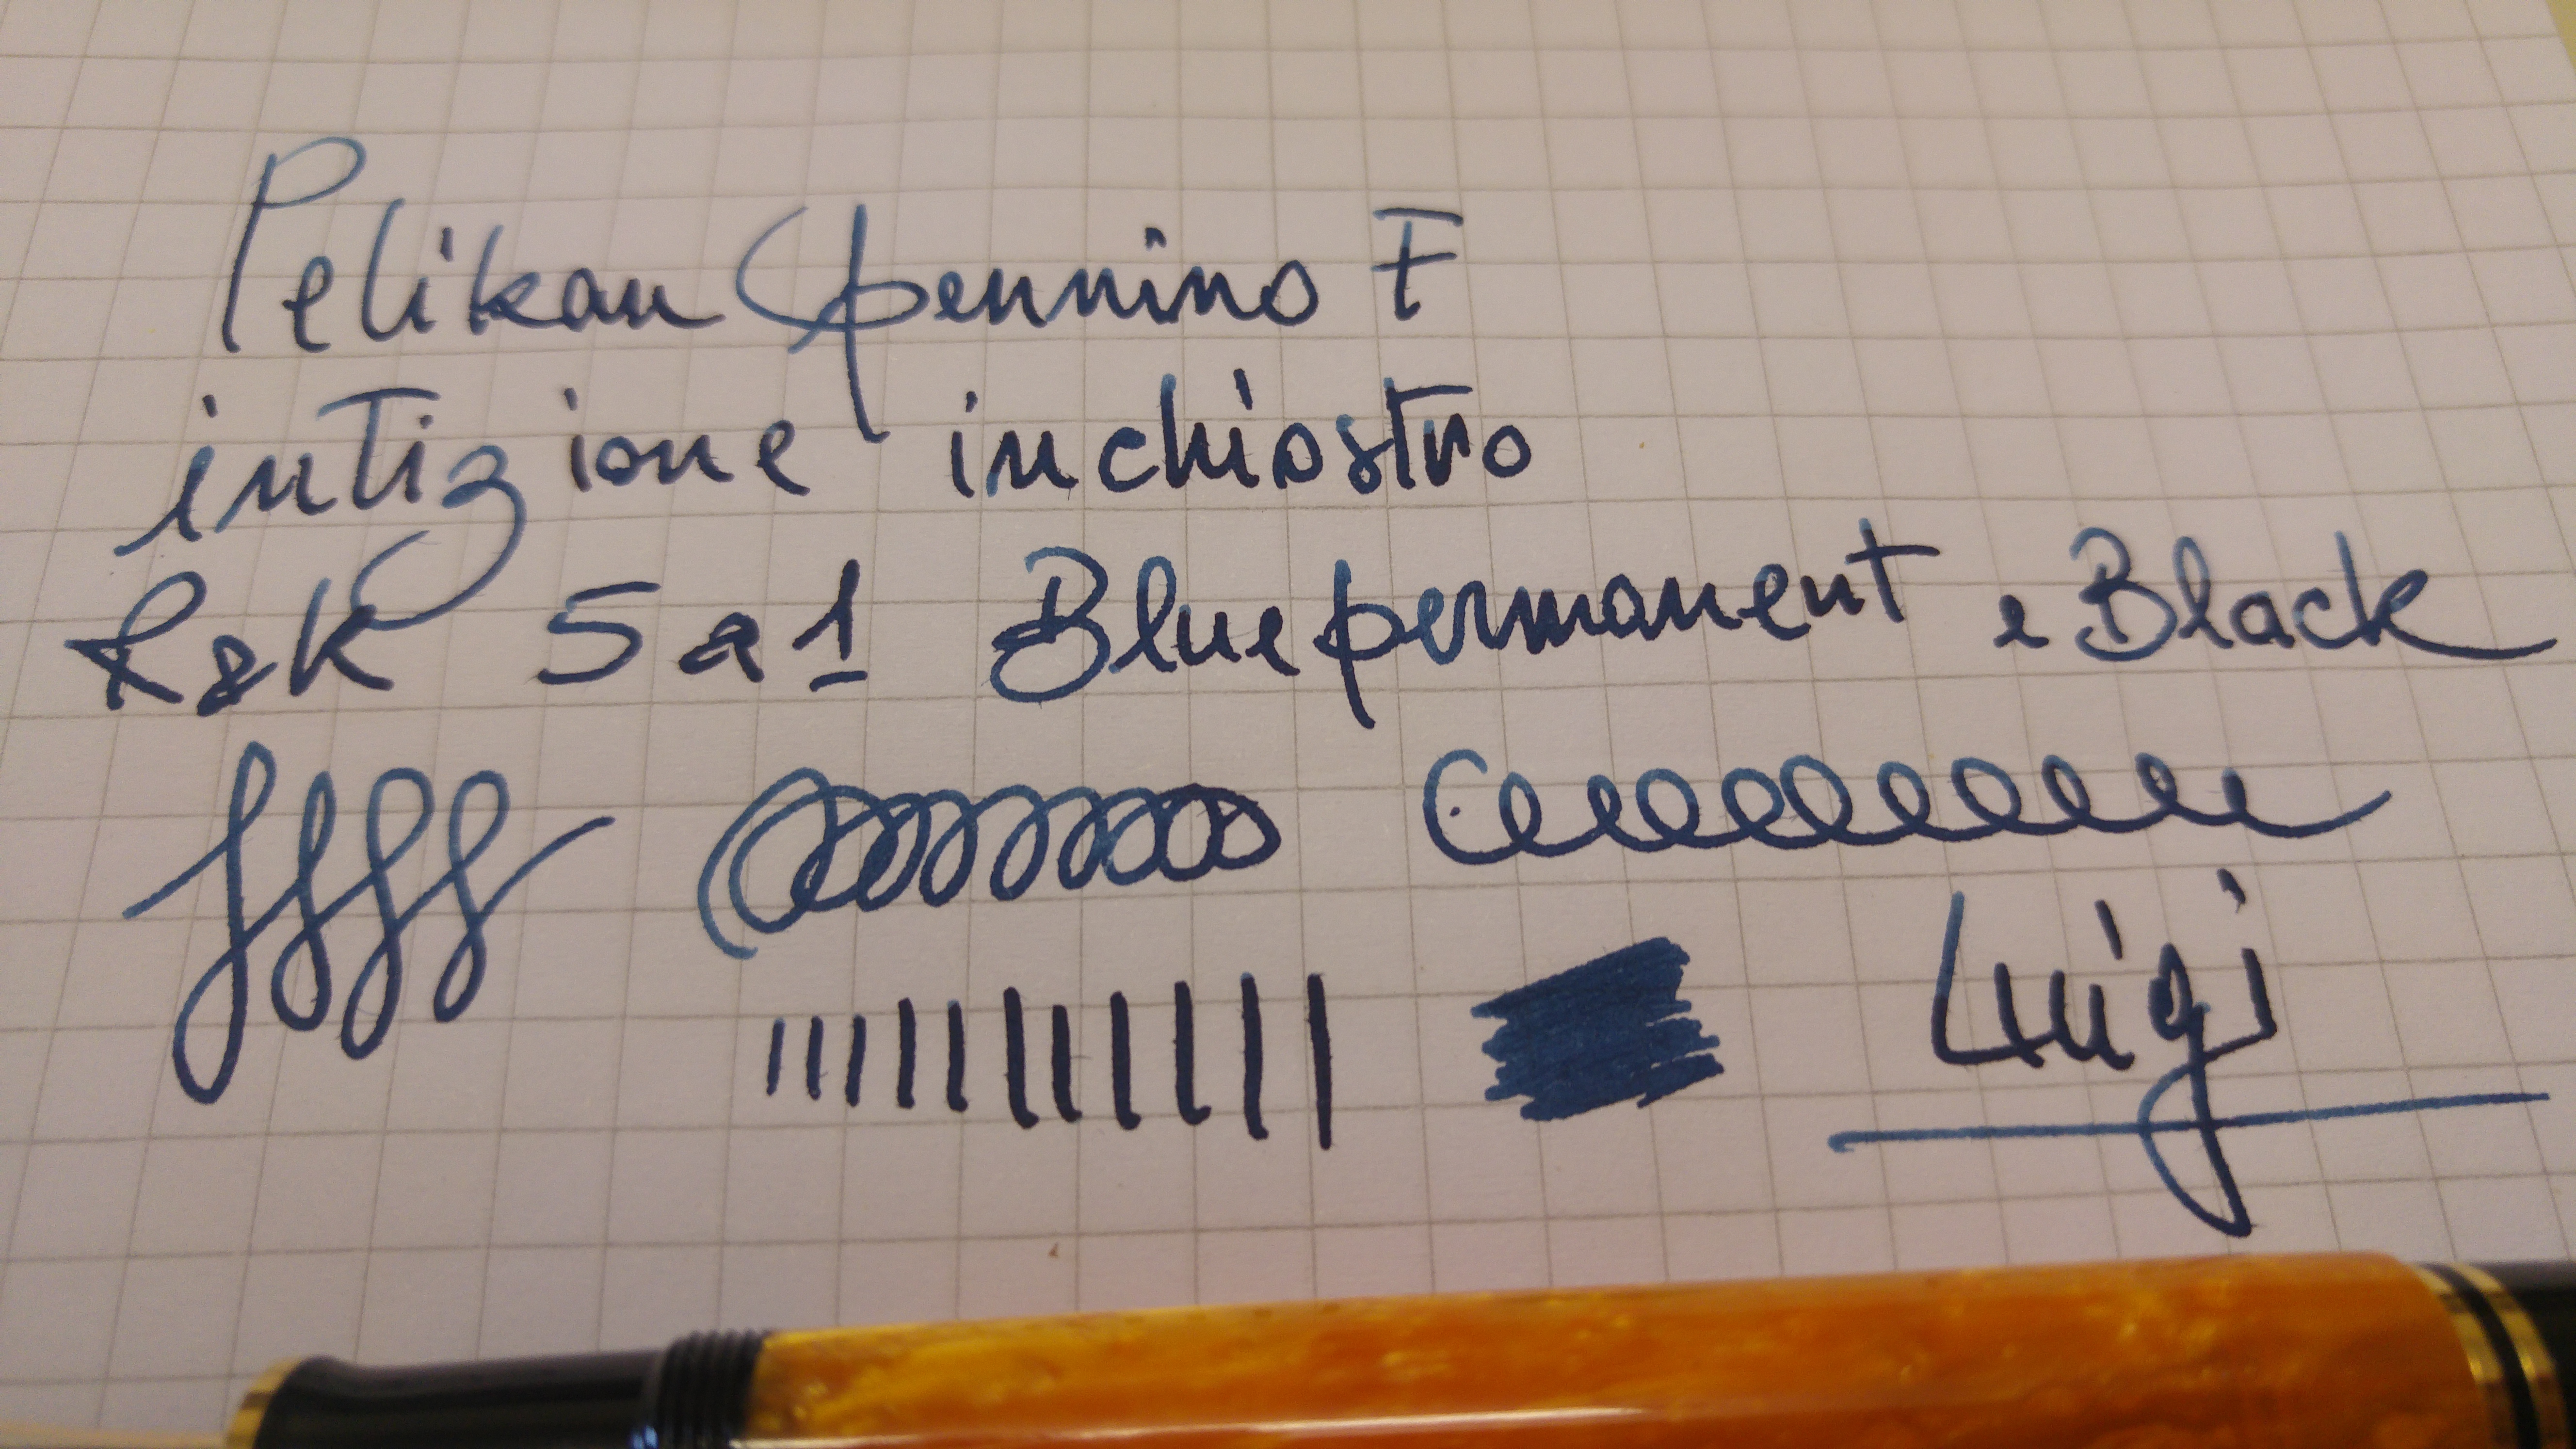 Pelikan pennino F
intizione inchiostro
R&K 5 a 1 Blue permanent e Black
Luigi